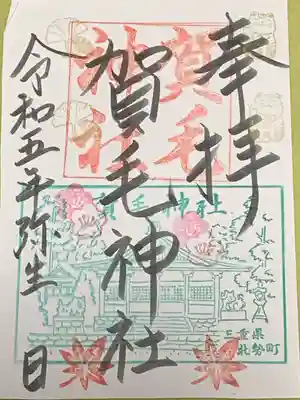 奉拝
賀毛神社
令和五年弥生 日
賀毛神社
賀毛神社
三重県
北勢町